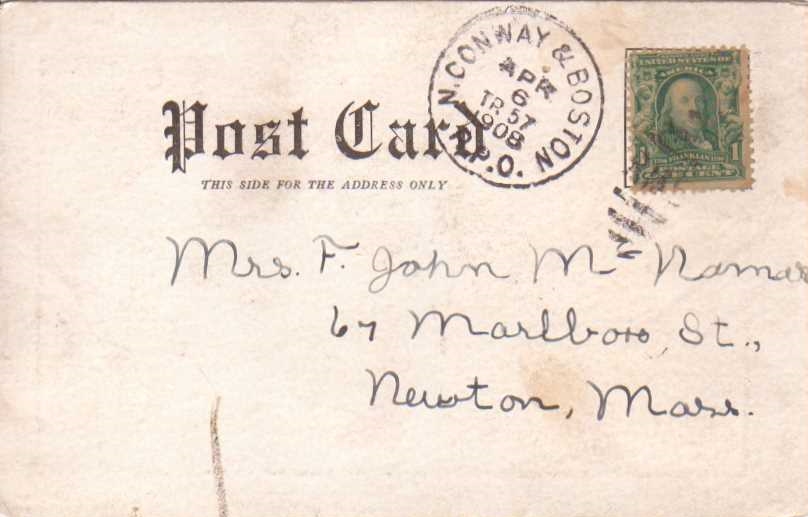 N. CONWAY & BOSTON
APR
6
TR. 57
1908
R.P.O.
UNITED STATES OF
AMERICA
FRANKLIN
1
POSTAGE
CENT
Post Card
THIS SIDE FOR THE ADDRESS ONLY
Mrs. F. John Mc Namar
67 Marlboro St.,
Newton, Mass.